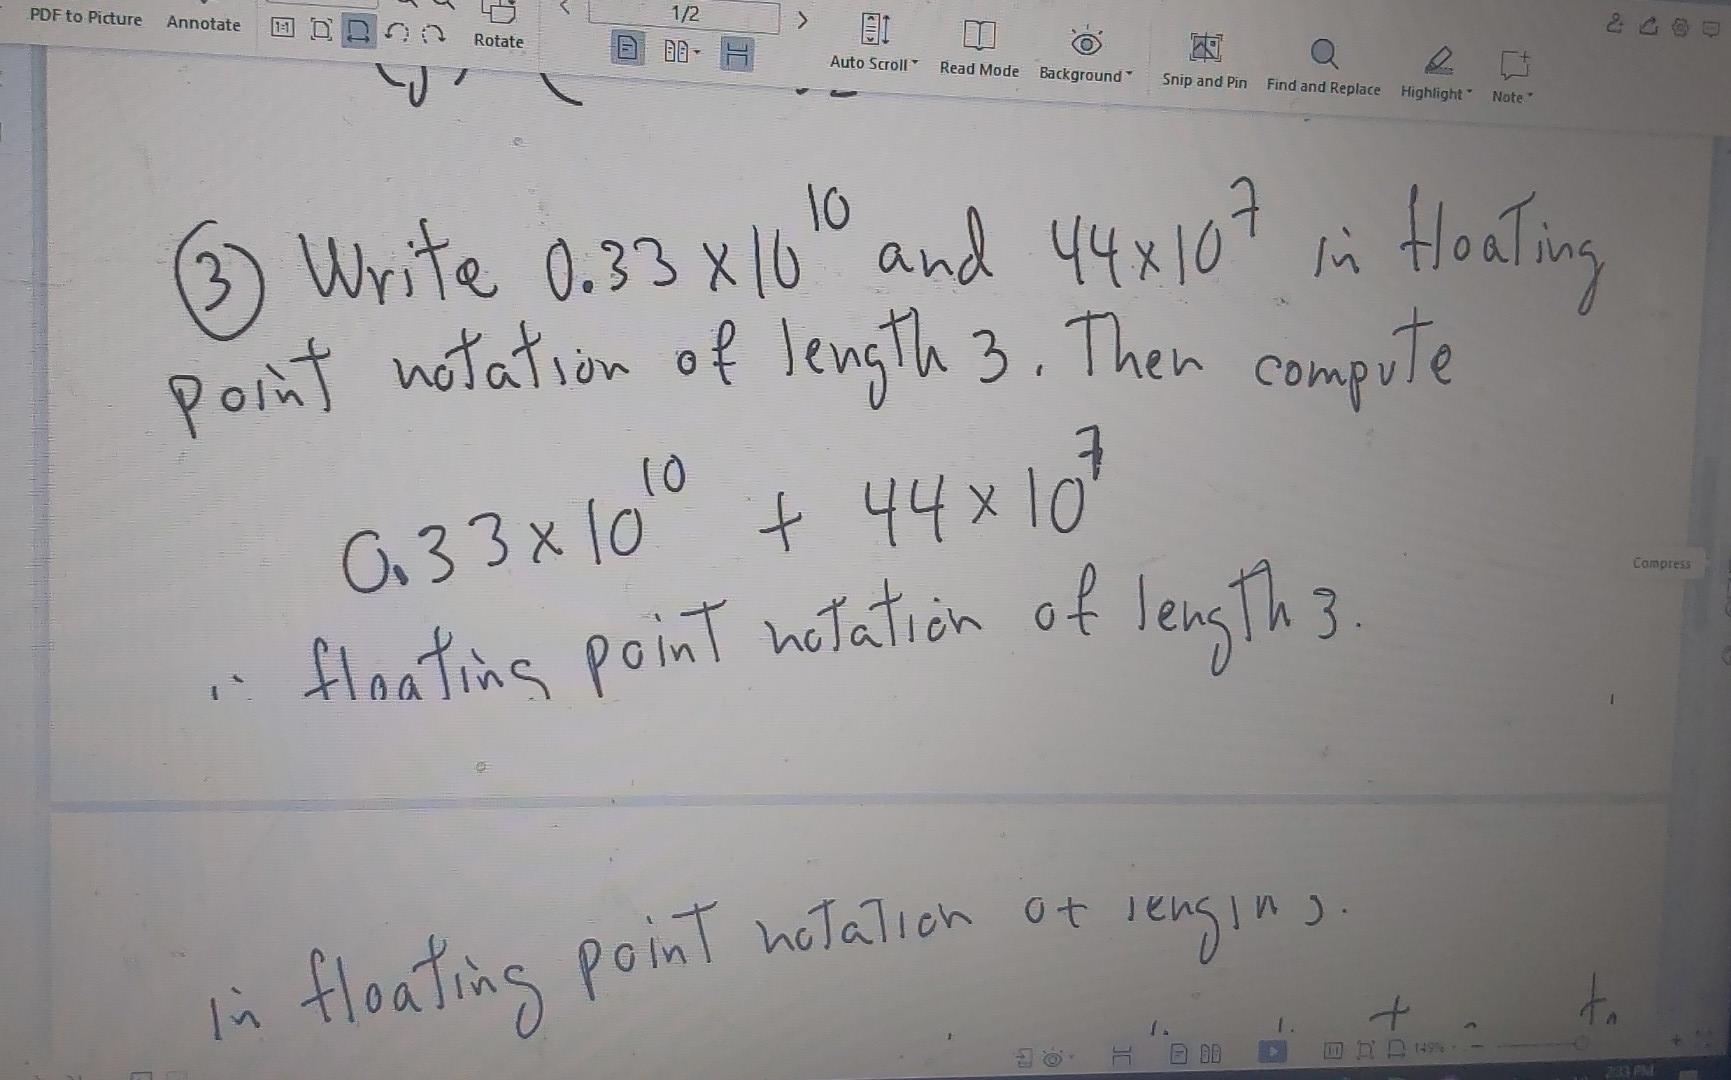 PDF to Picture Annotate 1:1 Rotate 1/2 Auto Scroll Read Mode Background Snip and Pin Find and Replace Highlight Note
③ Write 0.33 x 10^10 and 44 x 10^7 in floating
point notation of length 3. Then compute
0.33 x 10^10 + 44 x 10^7
floating point notation of length 3.
Compress
in floating point notation
149%
2:33 PM